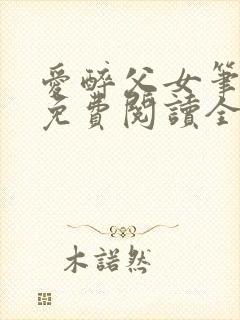 愛醉父女筆
免費閱讀全
木諾然